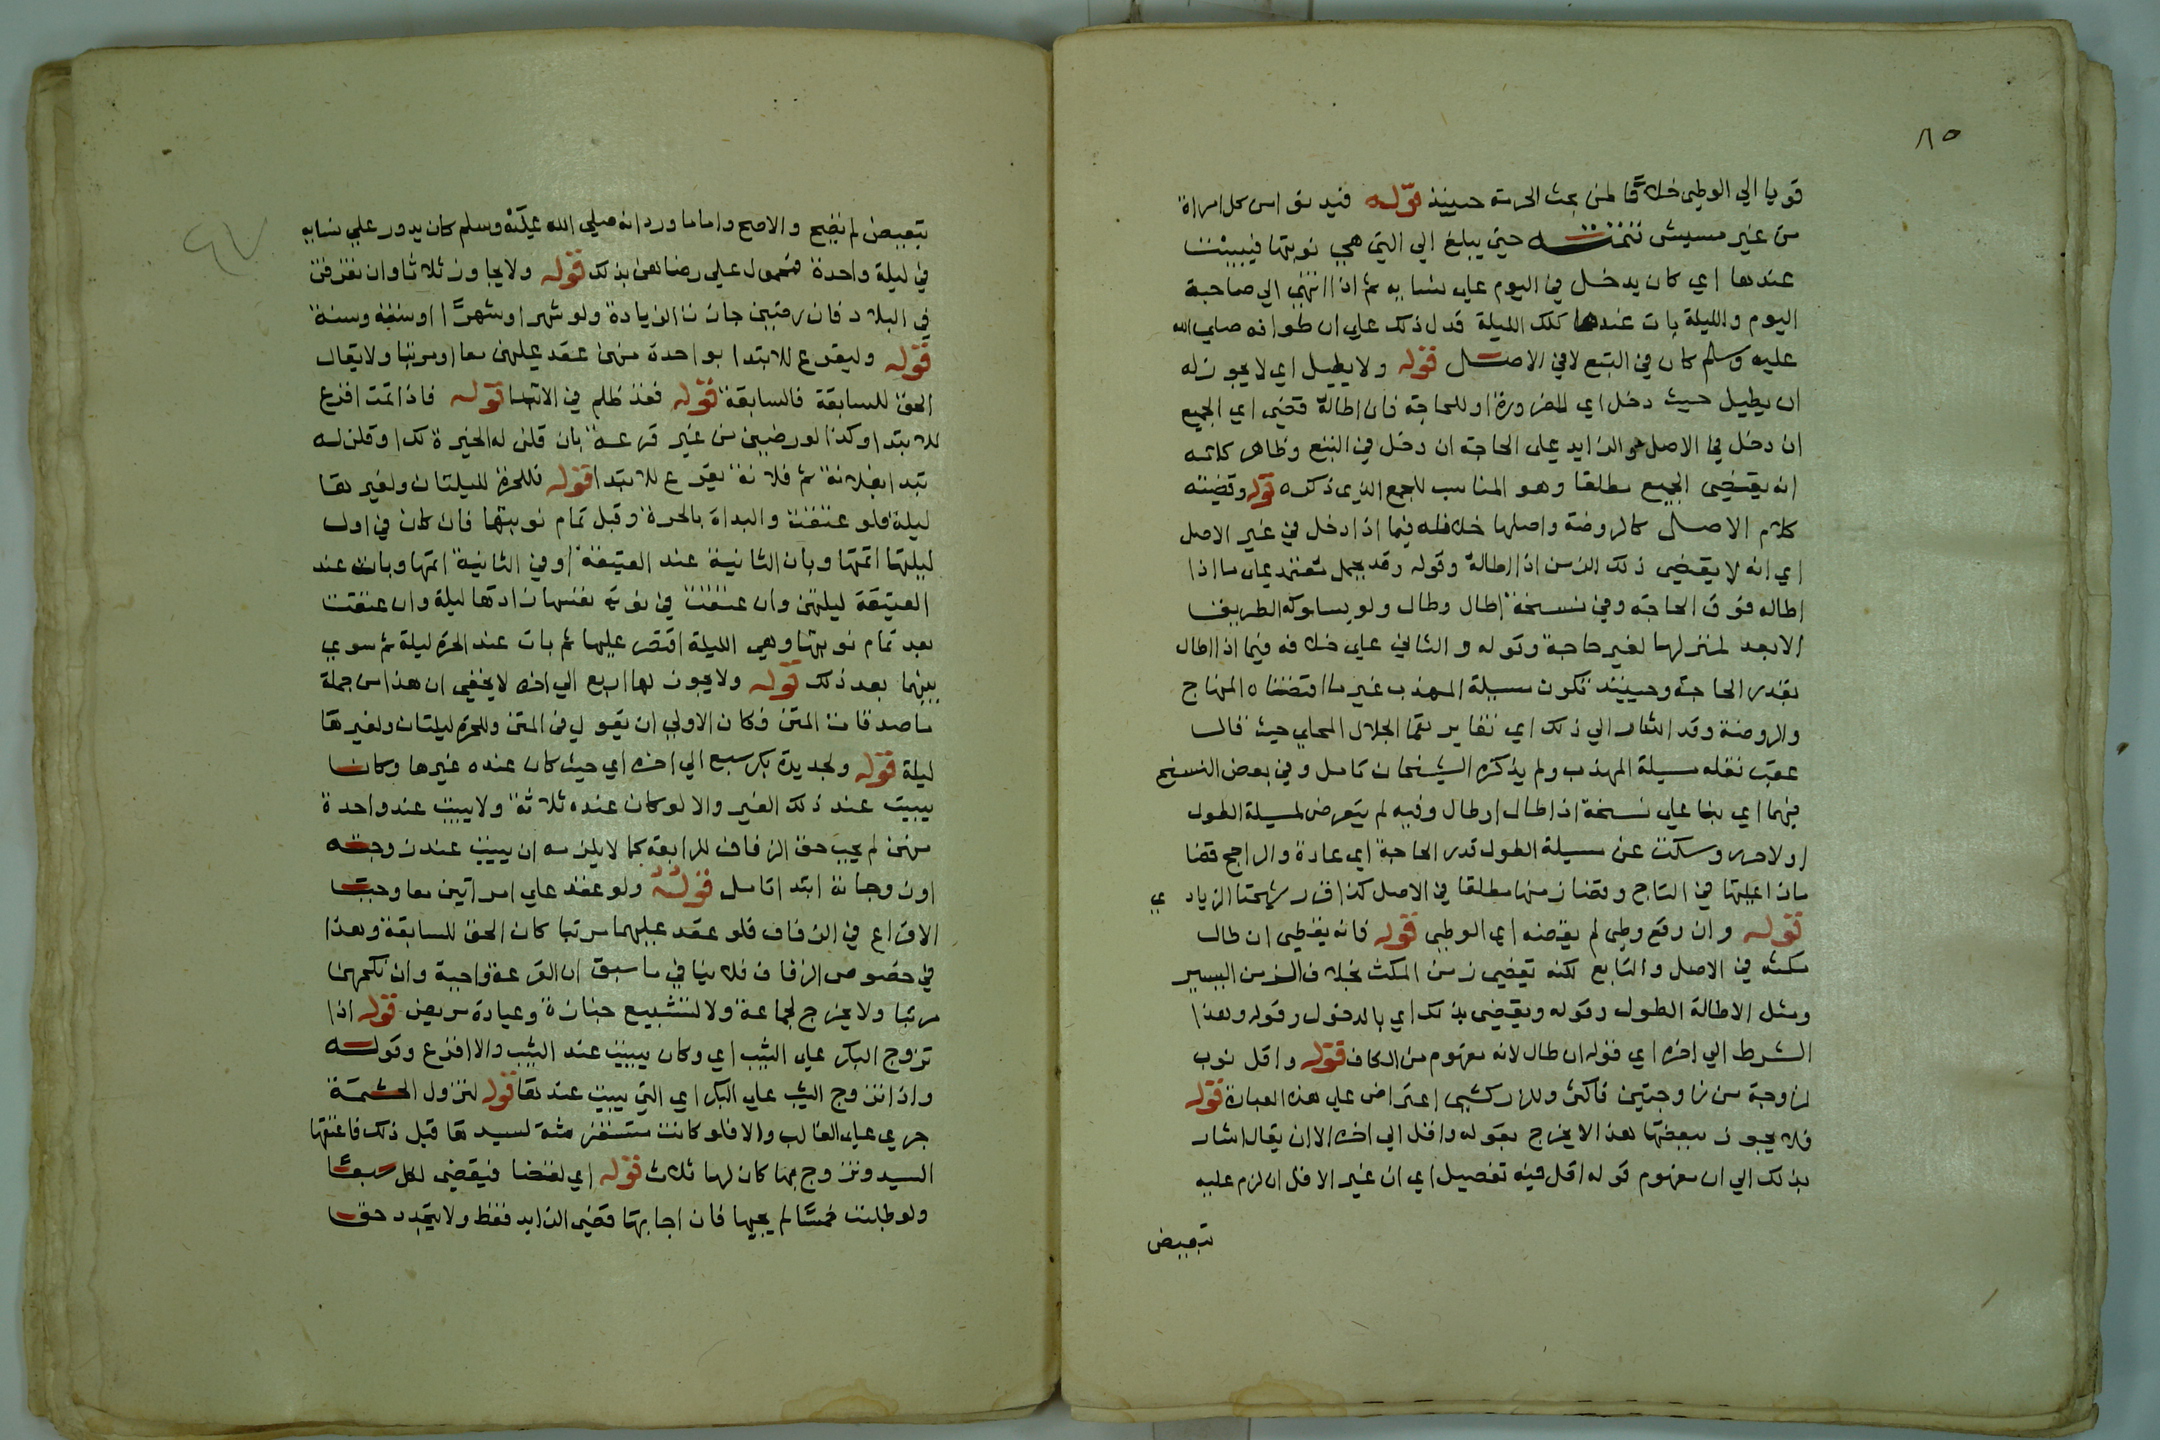 ٨٥
قويا الي الوطي خلافا لمن بحث الحرمة حينيذ قوله فيدنوا من كل امراة
من غير مسيس حتي يبلغ الي التي هي نوبتها فيبيت
عندها اي كان يدخل في اليوم علي نسايه ثم اذا انتهي الي صاحبة
اليوم والليلة بات عندها تلك الليلة فدل ذلك علي ان طوافه صلي الله
عليه وسلم كان في التبع لا في الاصل قوله ولا يطيل اي لا يجوز له
ان يطيل حيث دخل اي للضرورة او للحاجة فان اطاله قضي اي الجميع
ان دخل في الاصل والزايد علي الحاجة ان دخل في التبع وظاهر كلامه
انه يقضي الجميع مطلقا وهو المناسب للجمع الذي ذكره قوله وقضيته
كلام الاصل كالروضة واصلها خلافه فيما اذا دخل في غير الاصل
اي انه لا يقضي ذلك الزمن اذا اطاله وقوله وقد يحمل علي ما اذا
اطاله فوق الحاجة وفي نسخة اطال وطال ولو بسلوكه الطريق
الابعد لمنزلها لغير حاجة وقوله والثاني علي خلافه فيما اذا اطال
بقدر الحاجة وحينيذ تكون مسيلة المهذب غير ما اقتضاه المنهاج
والروضة وقد اشار الي ذلك اي تغايرهما الجلال المحلي حيث قال
عقب نقله مسيلة المهذب ولم يذكره الشيخان تامل وفي بعض النسخ
فيهما اي بنا علي نسخة اذا طال او طال وفيه لم يتعرض لمسيلة الطول
اولا وسكت عن مسيلة الطول قدر الحاجة اي عادة والراجح قضا
في التابع وقضا زمنها مطلقا في الاصل كذا شيخنا الزيادي
قوله وان وقع وطي لم يقضه اي الوطي قوله فانه يقضي ان طال
مكثه في الاصل والتابع لكنه يقضي زمن المكث بخلاف الزمن اليسير
ومثل الاطالة الطول وقوله ويقضي بذلك اي بالدخول وقوله وهذا
الشرط الي اخره اي قوله ان طال لانه مفهوم من الكاف قوله واقل نوب
لزوجة من زوجتين فاكثر وللزركشي اعتراض علي هذه العبارة قوله
فلا يجوز ببعضها هذا لا يخرج بقوله واقل الي اخره الا ان يقال اشار
بذلك الي ان مفهوم قوله اقل فيه تفصيل اي ان غير الاقل ان لزم عليه
تبعيض
تبعيض لم يصح والا صح واما ما ورد انه صلي الله عليه وسلم كان يدور علي نسايه
في ليلة واحدة فمحمول علي رضاهن بذلك قوله ولا يجاوز ثلاثا وان تفرقن
في البلاد فان رضين جازت الزيادة ولو شهرا وشهرا او سنة وسنة
قوله وليقرع للابتدا بواحدة منهن عقد عليهن معا او مرتبا ولا يقال
الحق للسابقة فالسابقة قوله فقد ظلم في الابتدا قوله فاذا تمت اقرع
للابتدا وكذا لو رضين من غير قرعة بان قلن له الخيرة لك او قلن له
تبدا بفلانة ثم فلانة يقرع للابتدا قوله فللحرة ليلتان ولغيرها
ليلة فلو عتقت والبداة بالحرة وقبل تمام نوبتها فان كان في اول
ليلتها اتمها وبات الثانية عند العتيقة او في الثانية اتمها وبات عند
العتيقة ليلتين وان عتقت في نوبة نفسها زادها ليلة وان عتقت
بعد تمام نوبتها وهي الليلة اقتصر عليها ثم بات عند الحرة ليلة ثم سوي
بينهما بعد ذلك قوله ولا يجوز لها اربع الي اخره لا يخفي ان هذا من جملة
ماصدقات المتن فكان الاولي ان يقول في المتن وللحرة ليلتان ولغيرها
ليلة قوله ولجديدة بكر سبع الي اخره اي حيث كان عنده غيرها وكان
يبيت عند ذلك الغير والا لو كان عنده ثلاثة ولا يبيت عند واحدة
منهن لم يجب حق الزفاف للرابعة كما لا يلزمه ان يبيت عند زوجته
او زوجاته ابتدا تامل قوله ولو عقد علي امراتين معا وجب
الاقراع في الزفاف فلو عقد عليهما مرتبا كان الحق للسابقة وهذا
في خصوص الزفاف فلا ينافي ما سبق ان القرعة واجبة وان نكحهن
مرتبا ولا يخرج لجماعة ولا لتشييع جنازة وعيادة مريض قوله اذا
تزوج البكر علي الثيب اي وكان يبيت عند الثيب والا اقرع وقوله
واذا تزوج الثيب علي البكر اي التي يبيت عندها قوله لتزول الحشمة
جري علي الغالب والا فلو كانت مستفرشة لسيدها قبل ذلك فاعتقها
السيد وتزوج بها كان لها ثلاث قوله اي لقضا فيقضي لكل سبعا
ولو طلبت خمسا لم يجبها فان اجابها قضي الزايد فقط ولا يتجدد حق